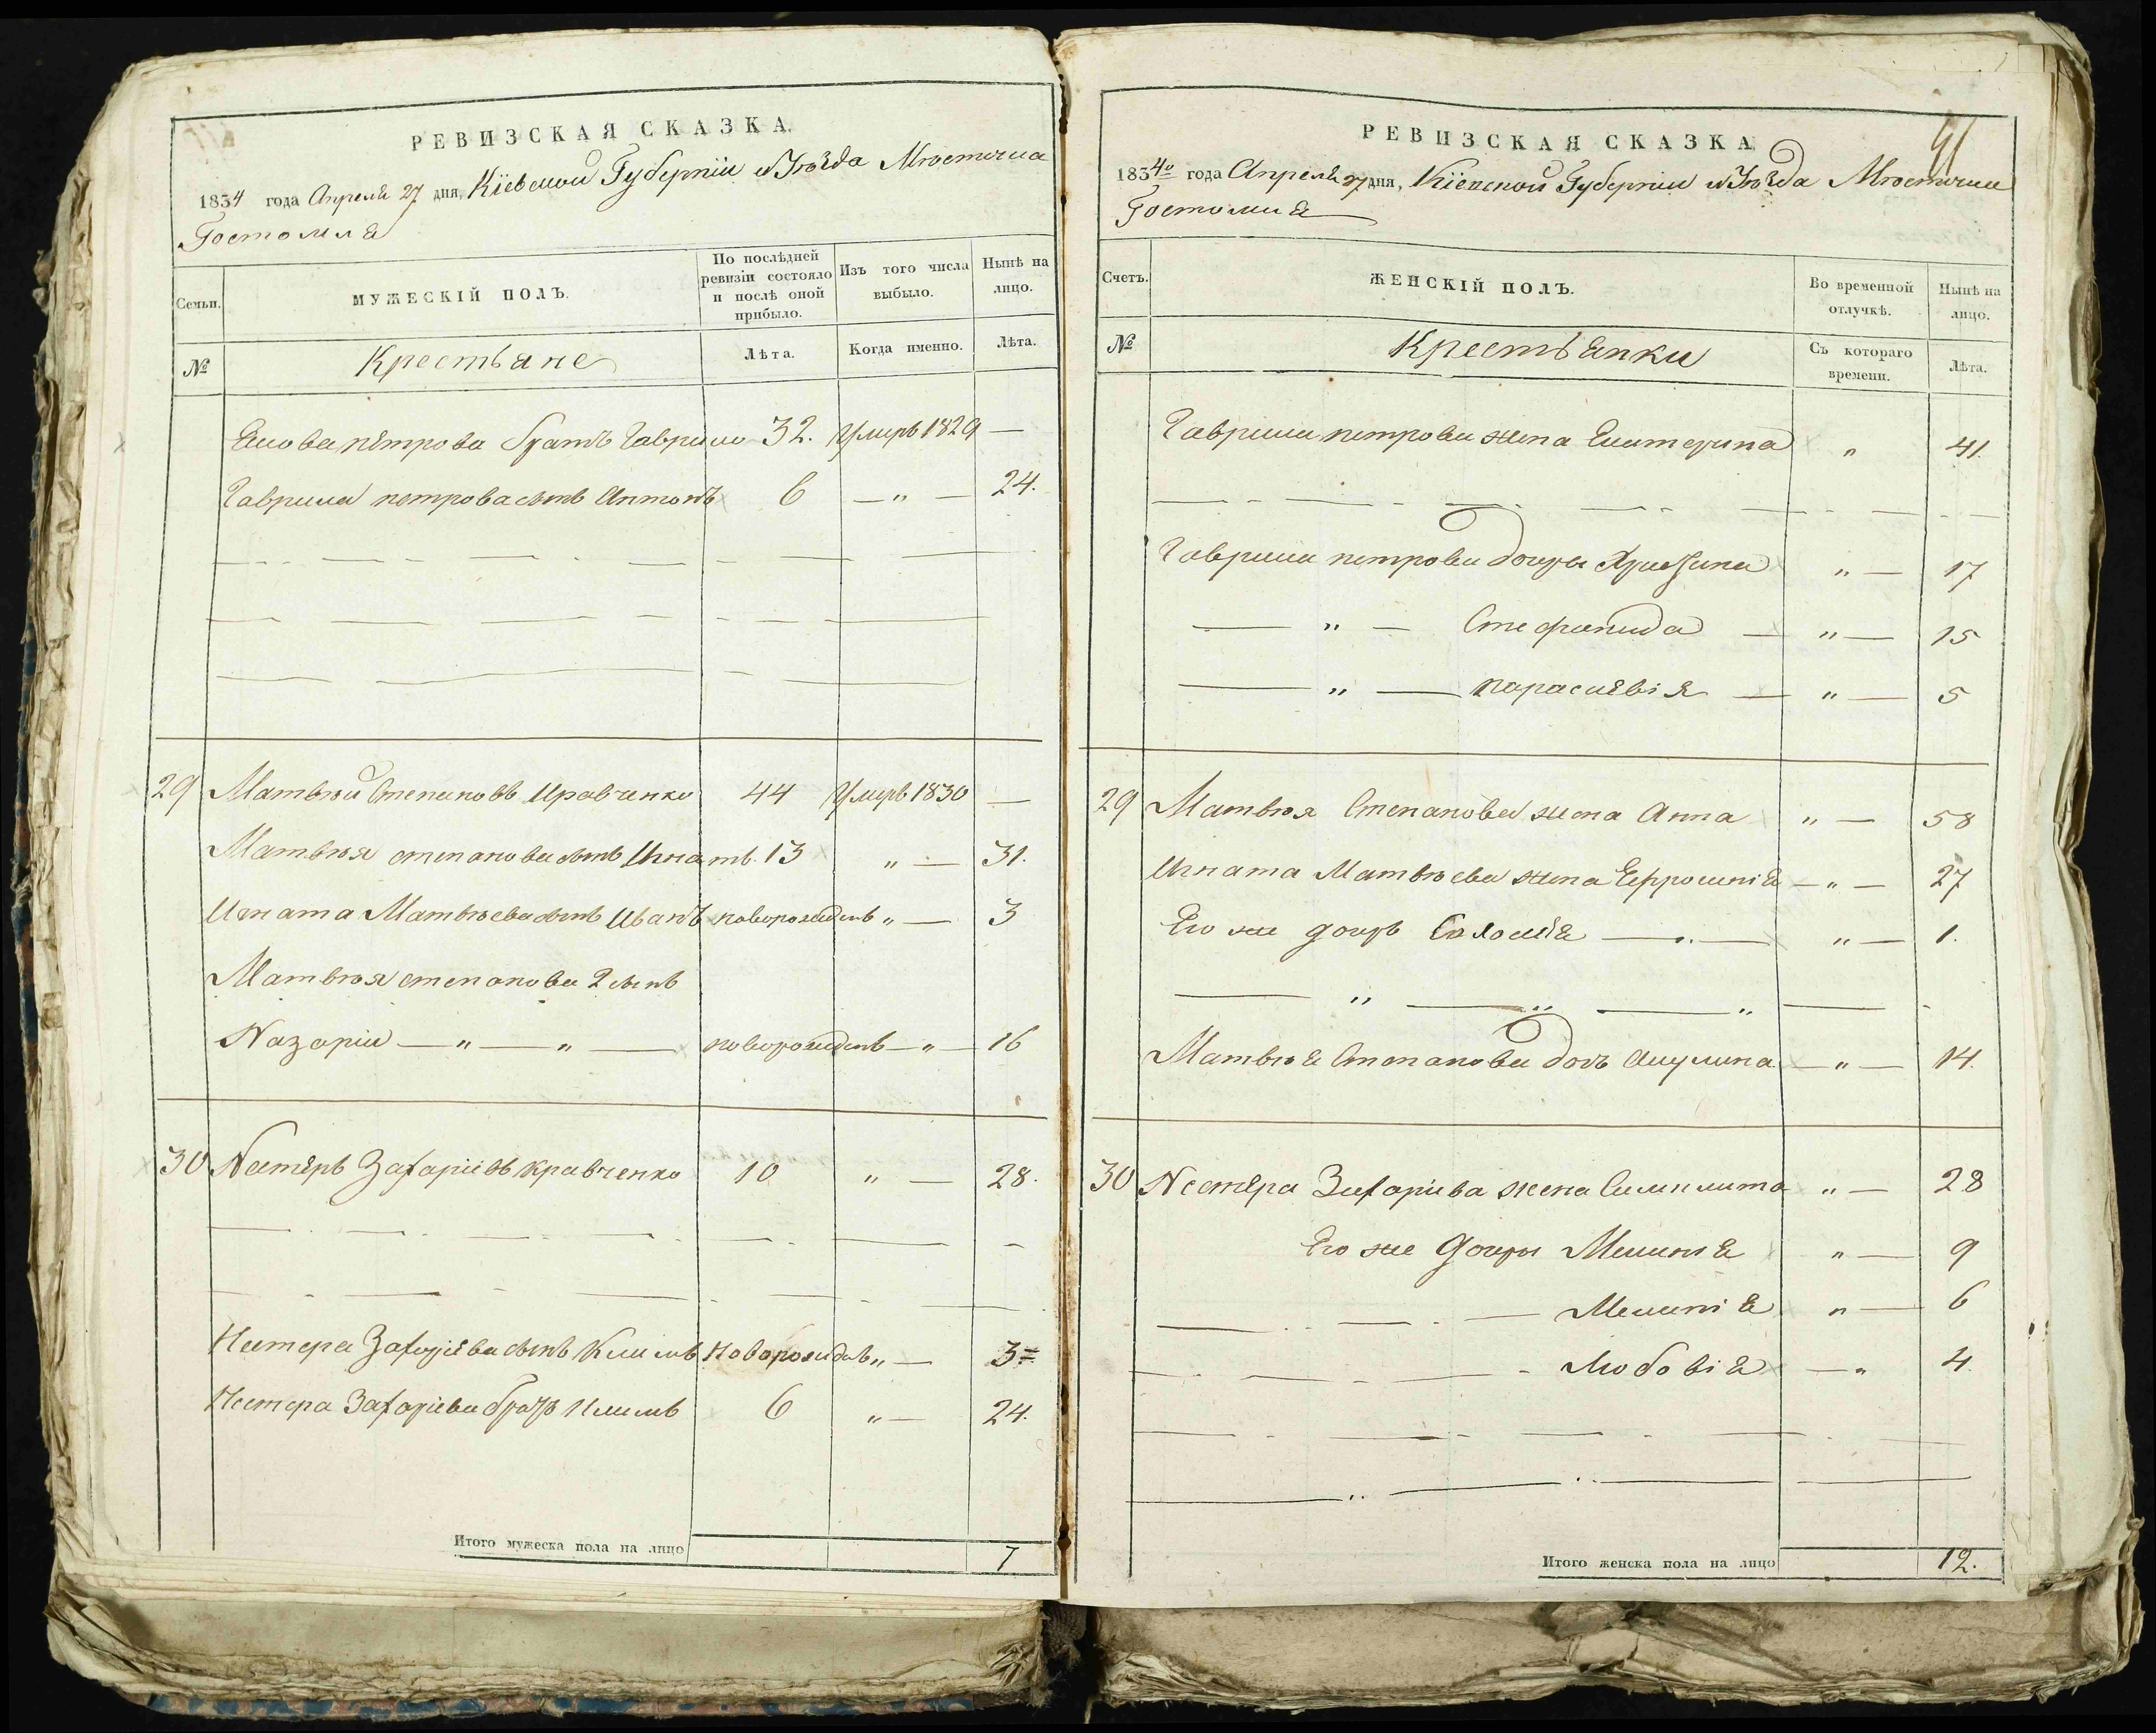 РЕВИЗСКАЯ СКАЗКА.
1834 года Апреля 27 дня, Кіевской Губерніи и Уѣзда Мѣстечка
Гостомля
Семьи.
МУЖЕСКІЙ ПОЛЪ.
По послѣдней ревизіи состояло и послѣ оной прибыло.
Изъ того числа выбыло.
Нынѣ на лицо.
№
Крестьяне
Лѣта.
Когда именно.
Лѣта.
петрова братъ Гаврило 32. Умеръ 1829 —
Гаврила петрова сынъ Антонъ 6 — " — 24.
29 Матвѣй Степановъ Кравченко 44 Умеръ 1830 —
Матвѣя степанова сынъ Игнатъ. 13 " — 31.
Игната Матвѣева сынъ Иванъ новорожденъ " — 3
Матвѣя степанова 2 сынъ
Назарій — " — " — новорожденъ — " — 16
30 Нестеръ Захаріевъ Кравченко 10 " — 28.
Нестера Захаріева сынъ Климъ Новорожденъ " — 3=
Нестера Захаріева братъ Климъ 6 " — 24.
Итого мужеска пола на лицо 7
41
РЕВИЗСКАЯ СКАЗКА
1834го года Апреля 27 дня, Кіевской Губерніи и Уѣзда Мѣстечка
Гостомля
Счетъ.
ЖЕНСКІЙ ПОЛЪ.
Во временной отлучкѣ.
Нынѣ на лицо.
№
Крестьянки
Съ котораго времени.
Лѣта.
Гаврила петрова жена Екатерина " 41.
Гаврила петрова дочеры Христина " — 17
— " — Стефанида — " — 15
— " — параскевія — " — 5
29 Матвѣя Степанова жена Анна " — 58
Игната Матвѣева жена Ефросинія — " — 27
Его же дочерь Саломія — " — " — 1.
— " — " — " —
Матвѣя Степанова дочь Акулина — " — 14.
30 Нестера Захаріва жена " — 28
Его же дочеры Меланія " — 9
Меланія " — 6
Любовія — " 4.
Итого женска пола на лицо 12.